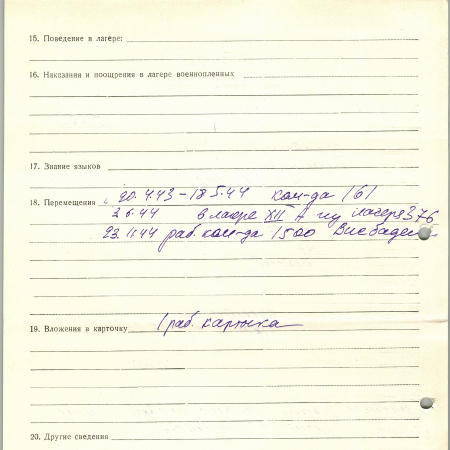 15. Поведение в лагере:
16. Наказания и поощрения в лагере военнопленных
17. Знание языков
18. Перемещения с 20.4.43 – 18.5.44 ком-да 161
3.6.44 в лагерь XII А из лагеря 376
23.11.44 раб. ком-да 1500 Висбаден
19. Вложения в карточку 1 раб. карточка
20. Другие сведения